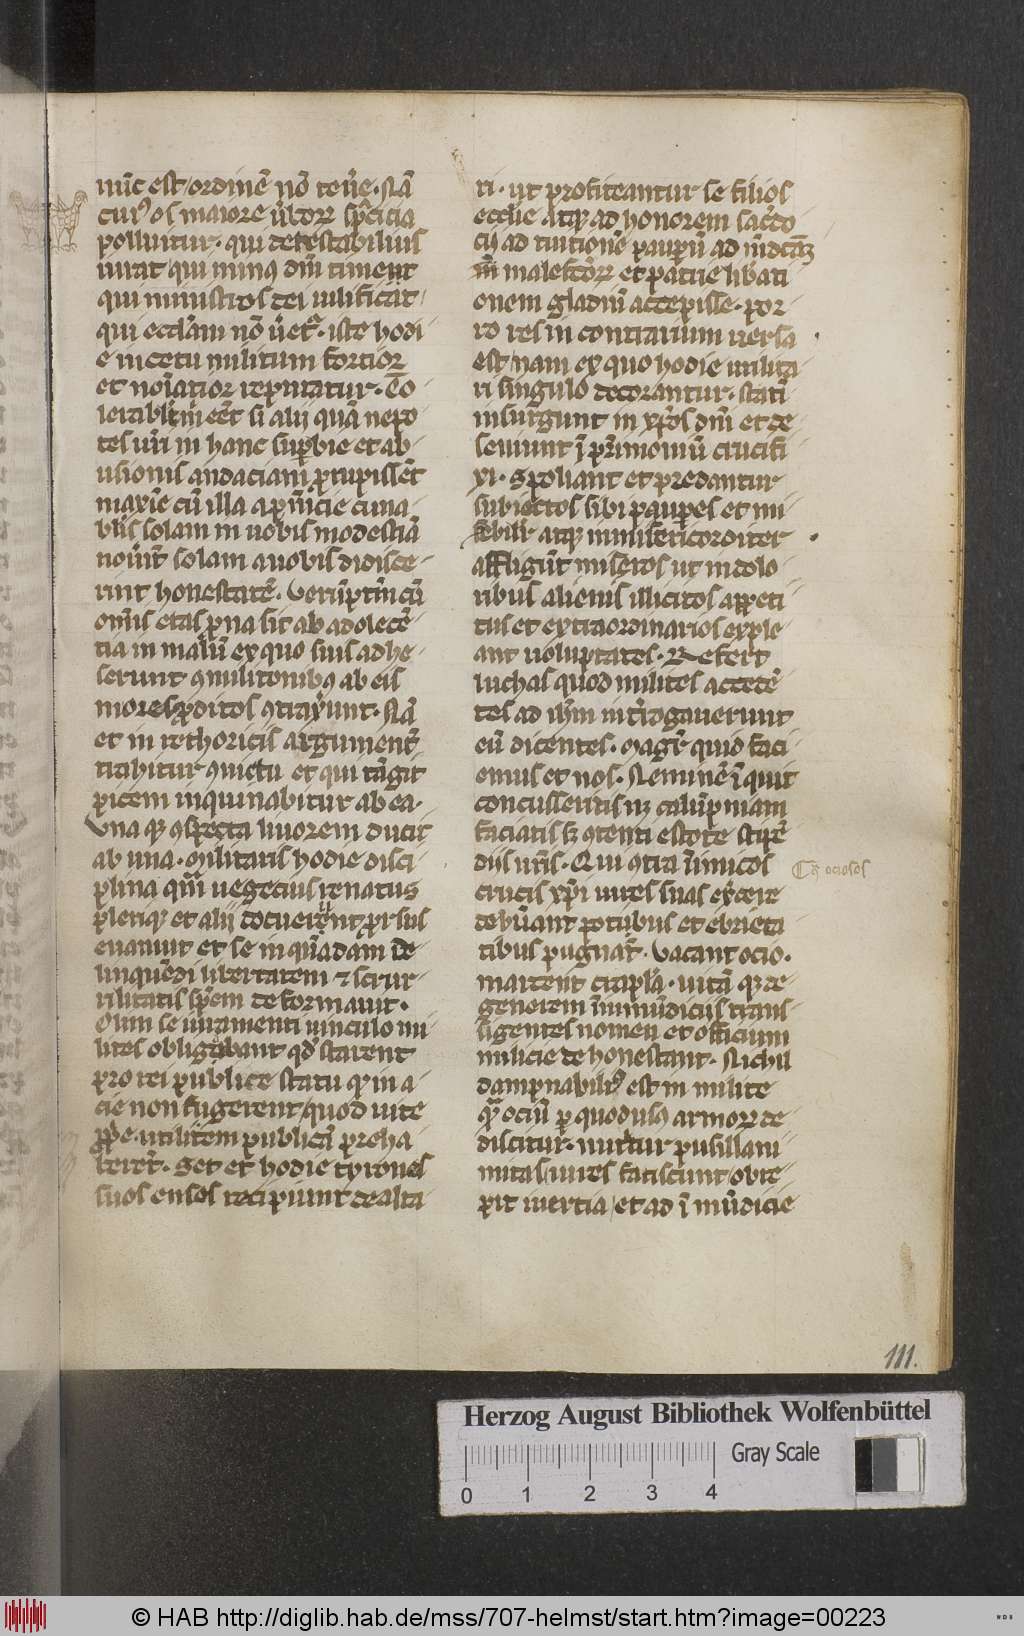 nu̅c est ordine̅ no̅ tene̅. Na̅
cui⁹ os maiore ũboꝝ spurcicia
polluitur. qui detestabilius
iurat qui min⁹ dm̅ timent
qui ministros dei uilificat
qui eccl̅iam no̅ ũet̃. iste hodi
e in cetu militum fortior
et no̅iatior reputatur. To
lerabili⁹ ee̅t si alij qua̅ nepo
tes ur̅i in hanc sup̱bie et ab
usionis audaciam p̱rupisse̅t
maxi̅e cu̅ illa
solam in uobis modestia̅
nou̅int solam a uobis didisce
rint honestate̅. Veru̅pt̅n cu̅
om̅is etas p̱na sit ab adolece̅
tia in malu̅ ex quo suis adhe
serunt ꝯmilitonib⁹ ab eis
mores p̱ditos ꝯtraxu̅nt. Na̅
et in rethoricis argument̃
trahitur ꝯuictu et qui ta̅git
picem inquinabitur ab ea.
Vna qꝫ ꝯspecta liuorem ducit
ab una. Militaris hodie disci
plina qua̅ uegecius renatus
pleriqꝫ et alij docuerunt p̱rsus
euanuit et se in qua̅dam de
linque̅di libertatem ⁊ scur
rilitatis spe̅m deformauit.
Olim se iuramenti uinculo mi
lites obligabant qd̅ starent
pro rei publice statu qd̅ in a
cie non fugerent quod uite
pp̱e utilite̅m publica̅ preha
berent̃. Set et hodie tyrones
suos enses recipiunt de alta
ri. ut profiteantur se filios
eccl̅ie atqꝫ ad honorem sac̅do
cij ad tuitione̅ paup̱u̅ ad ui̅dc̅aꝫ
malefc̅oꝝ et patrie liberati
onem gladiu̅ accepisse. por
ro res in contrarium uersa
est nam ex quo hodie milita
ri singulo decorantur. stati̅
insurgunt in xp̅os dn̅i et de
seuiunt i̅ pr̃imoniu̅ crucifi
xi. Spoliant et predantur
subiectos sibi paup̱es et mi
serabilit̃ atqꝫ inmisericorditer
affligu̅t miseros ut in dolo
ribus alienis illicitos appeti
tus et extraordinarios exple
ant uoluptates. Refert
luchas quod milites accede̅
tes ad ih̅m int̃rogauerunt
eu̅ dicentes. Magr̃ quid faci
emus et nos. Nemine̅ i̅quit
concusseritis nꝫ calu̅pniam
faciatis sꝫ ꝯtenti estote stipe̅
diis ur̅is. Qui ꝯtra i̅imicos
crucis xp̅i uires suas ex̃cere
debu̅ant potibus et ebrieta
tibus pugnant̃. Vacant ocio.
marcent crapula. uita̅ qꝫ de
generem i̅ inmu̅diciis trans
sigentes nomen et officium
milicie dehonestant. Nichil
dampnabili⁹ est in milite
qua̅ ociu̅ p̱ quod usus armoꝝ de
discitur. nutritur pusillani
mitas uires fatiscunt obre
pit inertia et ad i̅mu̅dicie
ociosos
111.
Herzog August Bibliothek Wolfenbüttel
Gray Scale
0 1 2 3 4
© HAB http://diglib.hab.de/mss/707-helmst/start.htm?image=00223